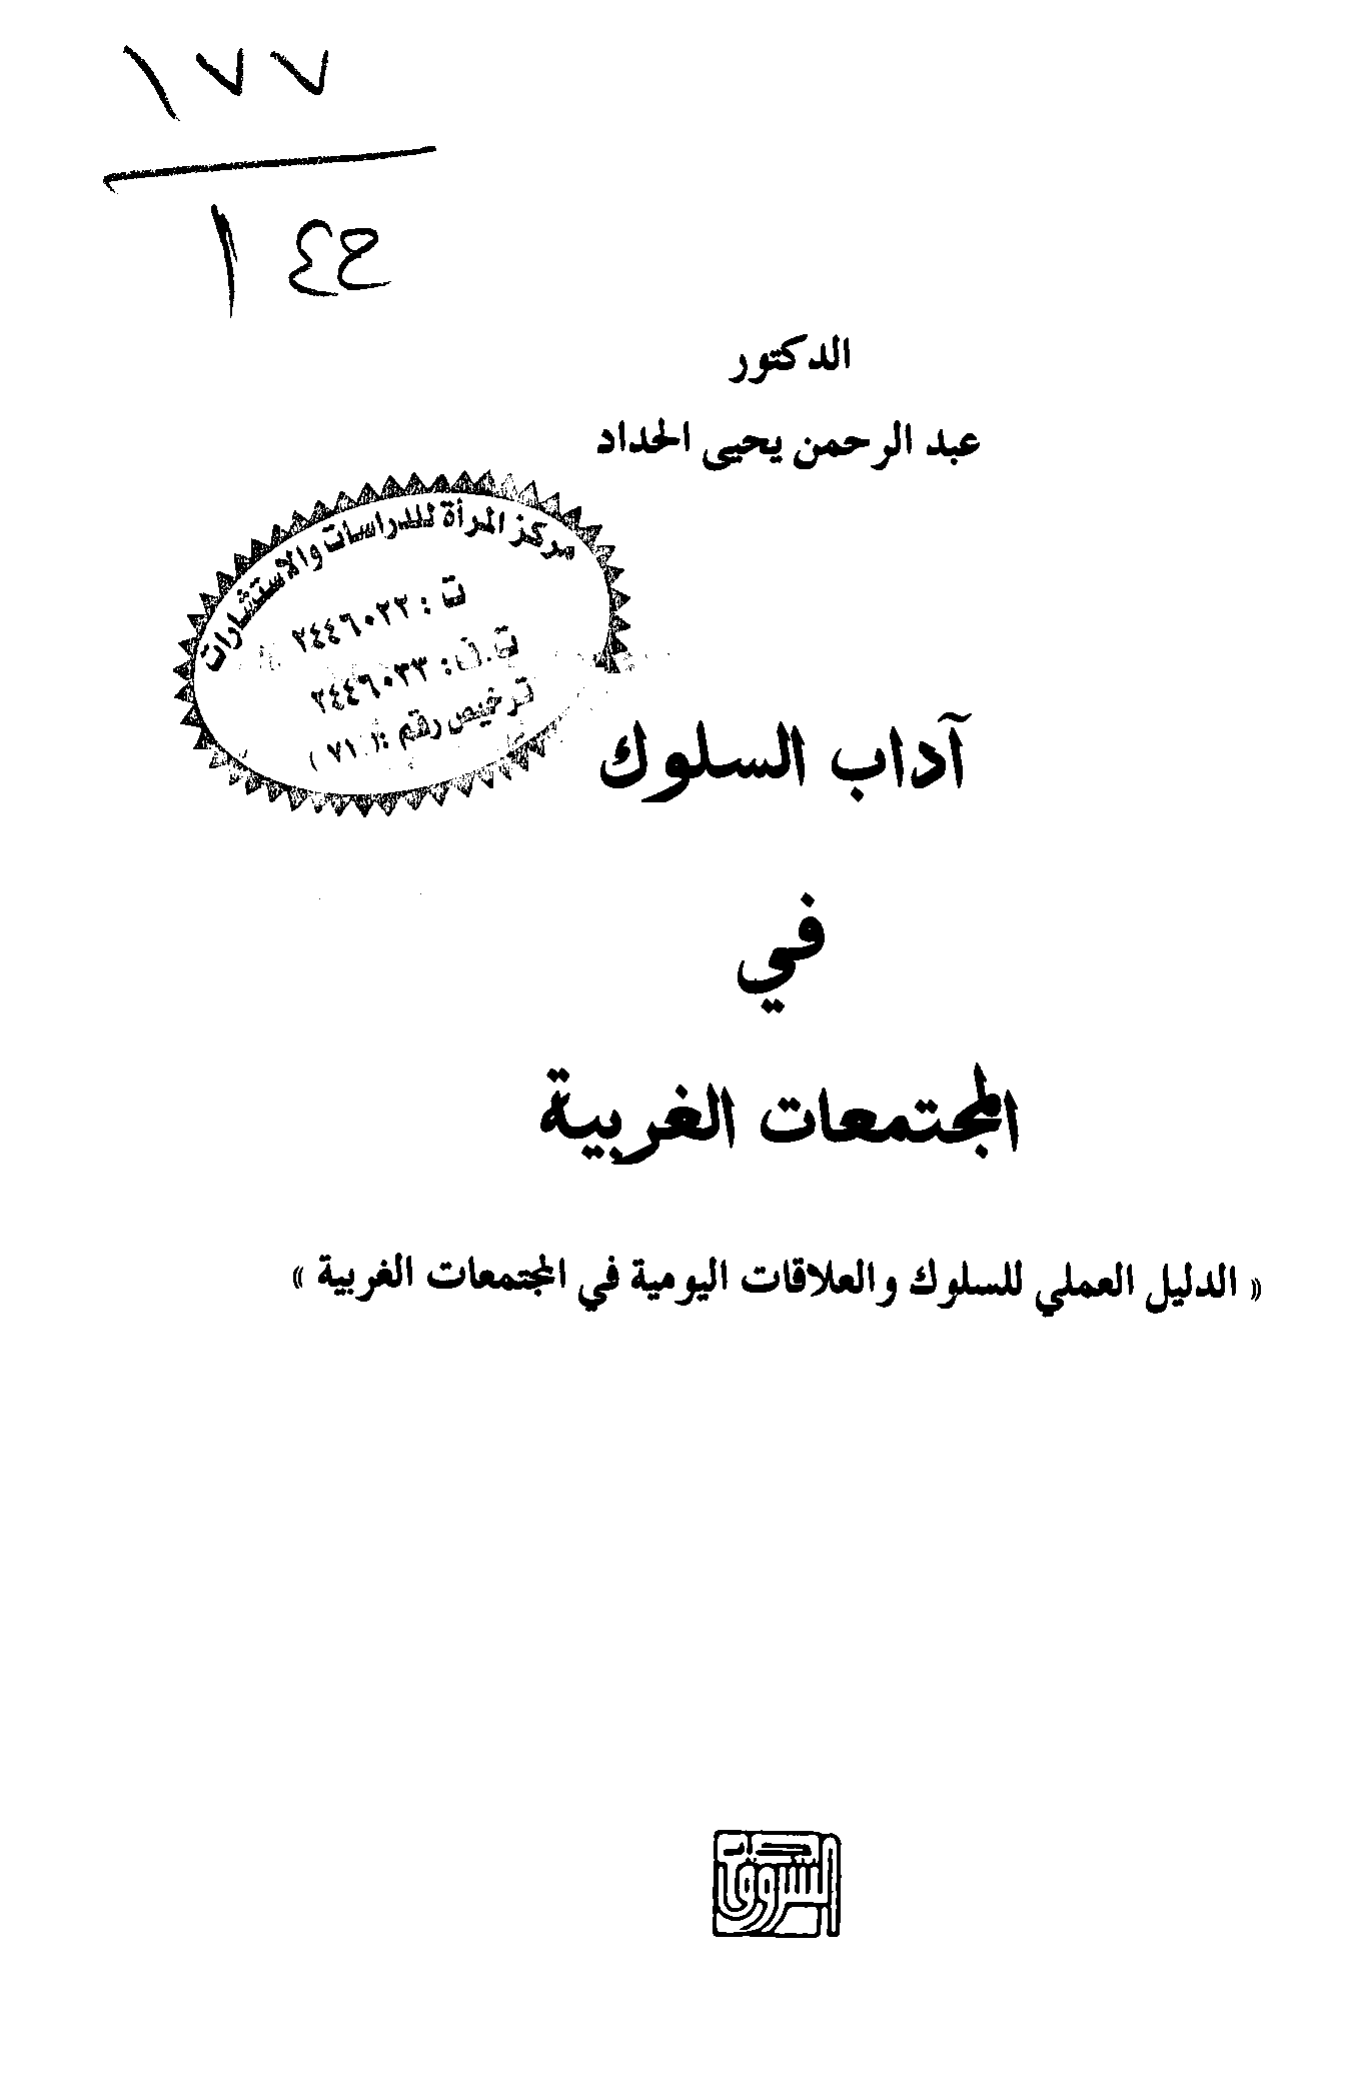 ١٧٧
ح٤ ا
الدكتور
عبد الرحمن يحيى الحداد
مركز المرأة للدراسات والاستشارات
ت : ٢٤٤٦٠٢٢
ت.ف: ٢٤٤٦٠٣٣
ترخيص رقم :( ٧١ )
آداب السلوك
في
المجتمعات الغربية
« الدليل العملي للسلوك والعلاقات اليومية في المجتمعات الغربية »
الشروق